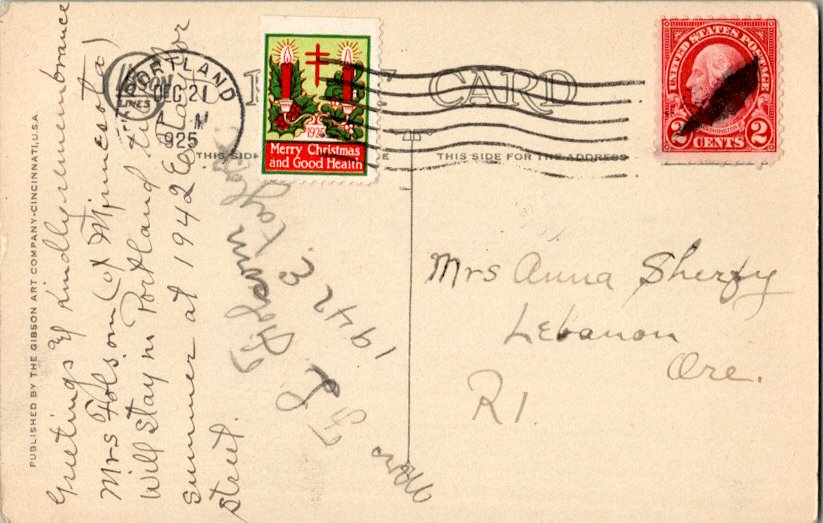 PORTLAND
DEC 21
1925
LINES
1925
Merry Christmas
and Good Health
CARD
UNITED STATES POSTAGE
WASHINGTON
2 CENTS 2
THIS SIDE
THIS SIDE FOR THE ADDRESS
PUBLISHED BY THE GIBSON ART COMPANY-CINCINNATI, U.S.A.
Greetings of kindly remembrance
Mrs Folsom (of Minnesota)
Will stay in Portland till
summer at 1942 E
street.
Mrs F L Folsom
1942 E. Taylor
Mrs Anna Sherfy
Lebanon
Ore.
R1.